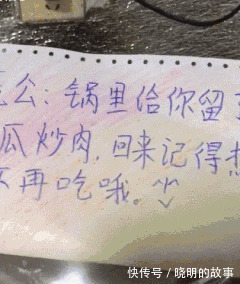 公：锅里给你留
瓜炒肉，回来记得
再吃哦。^v^
快传号/晓明的故事